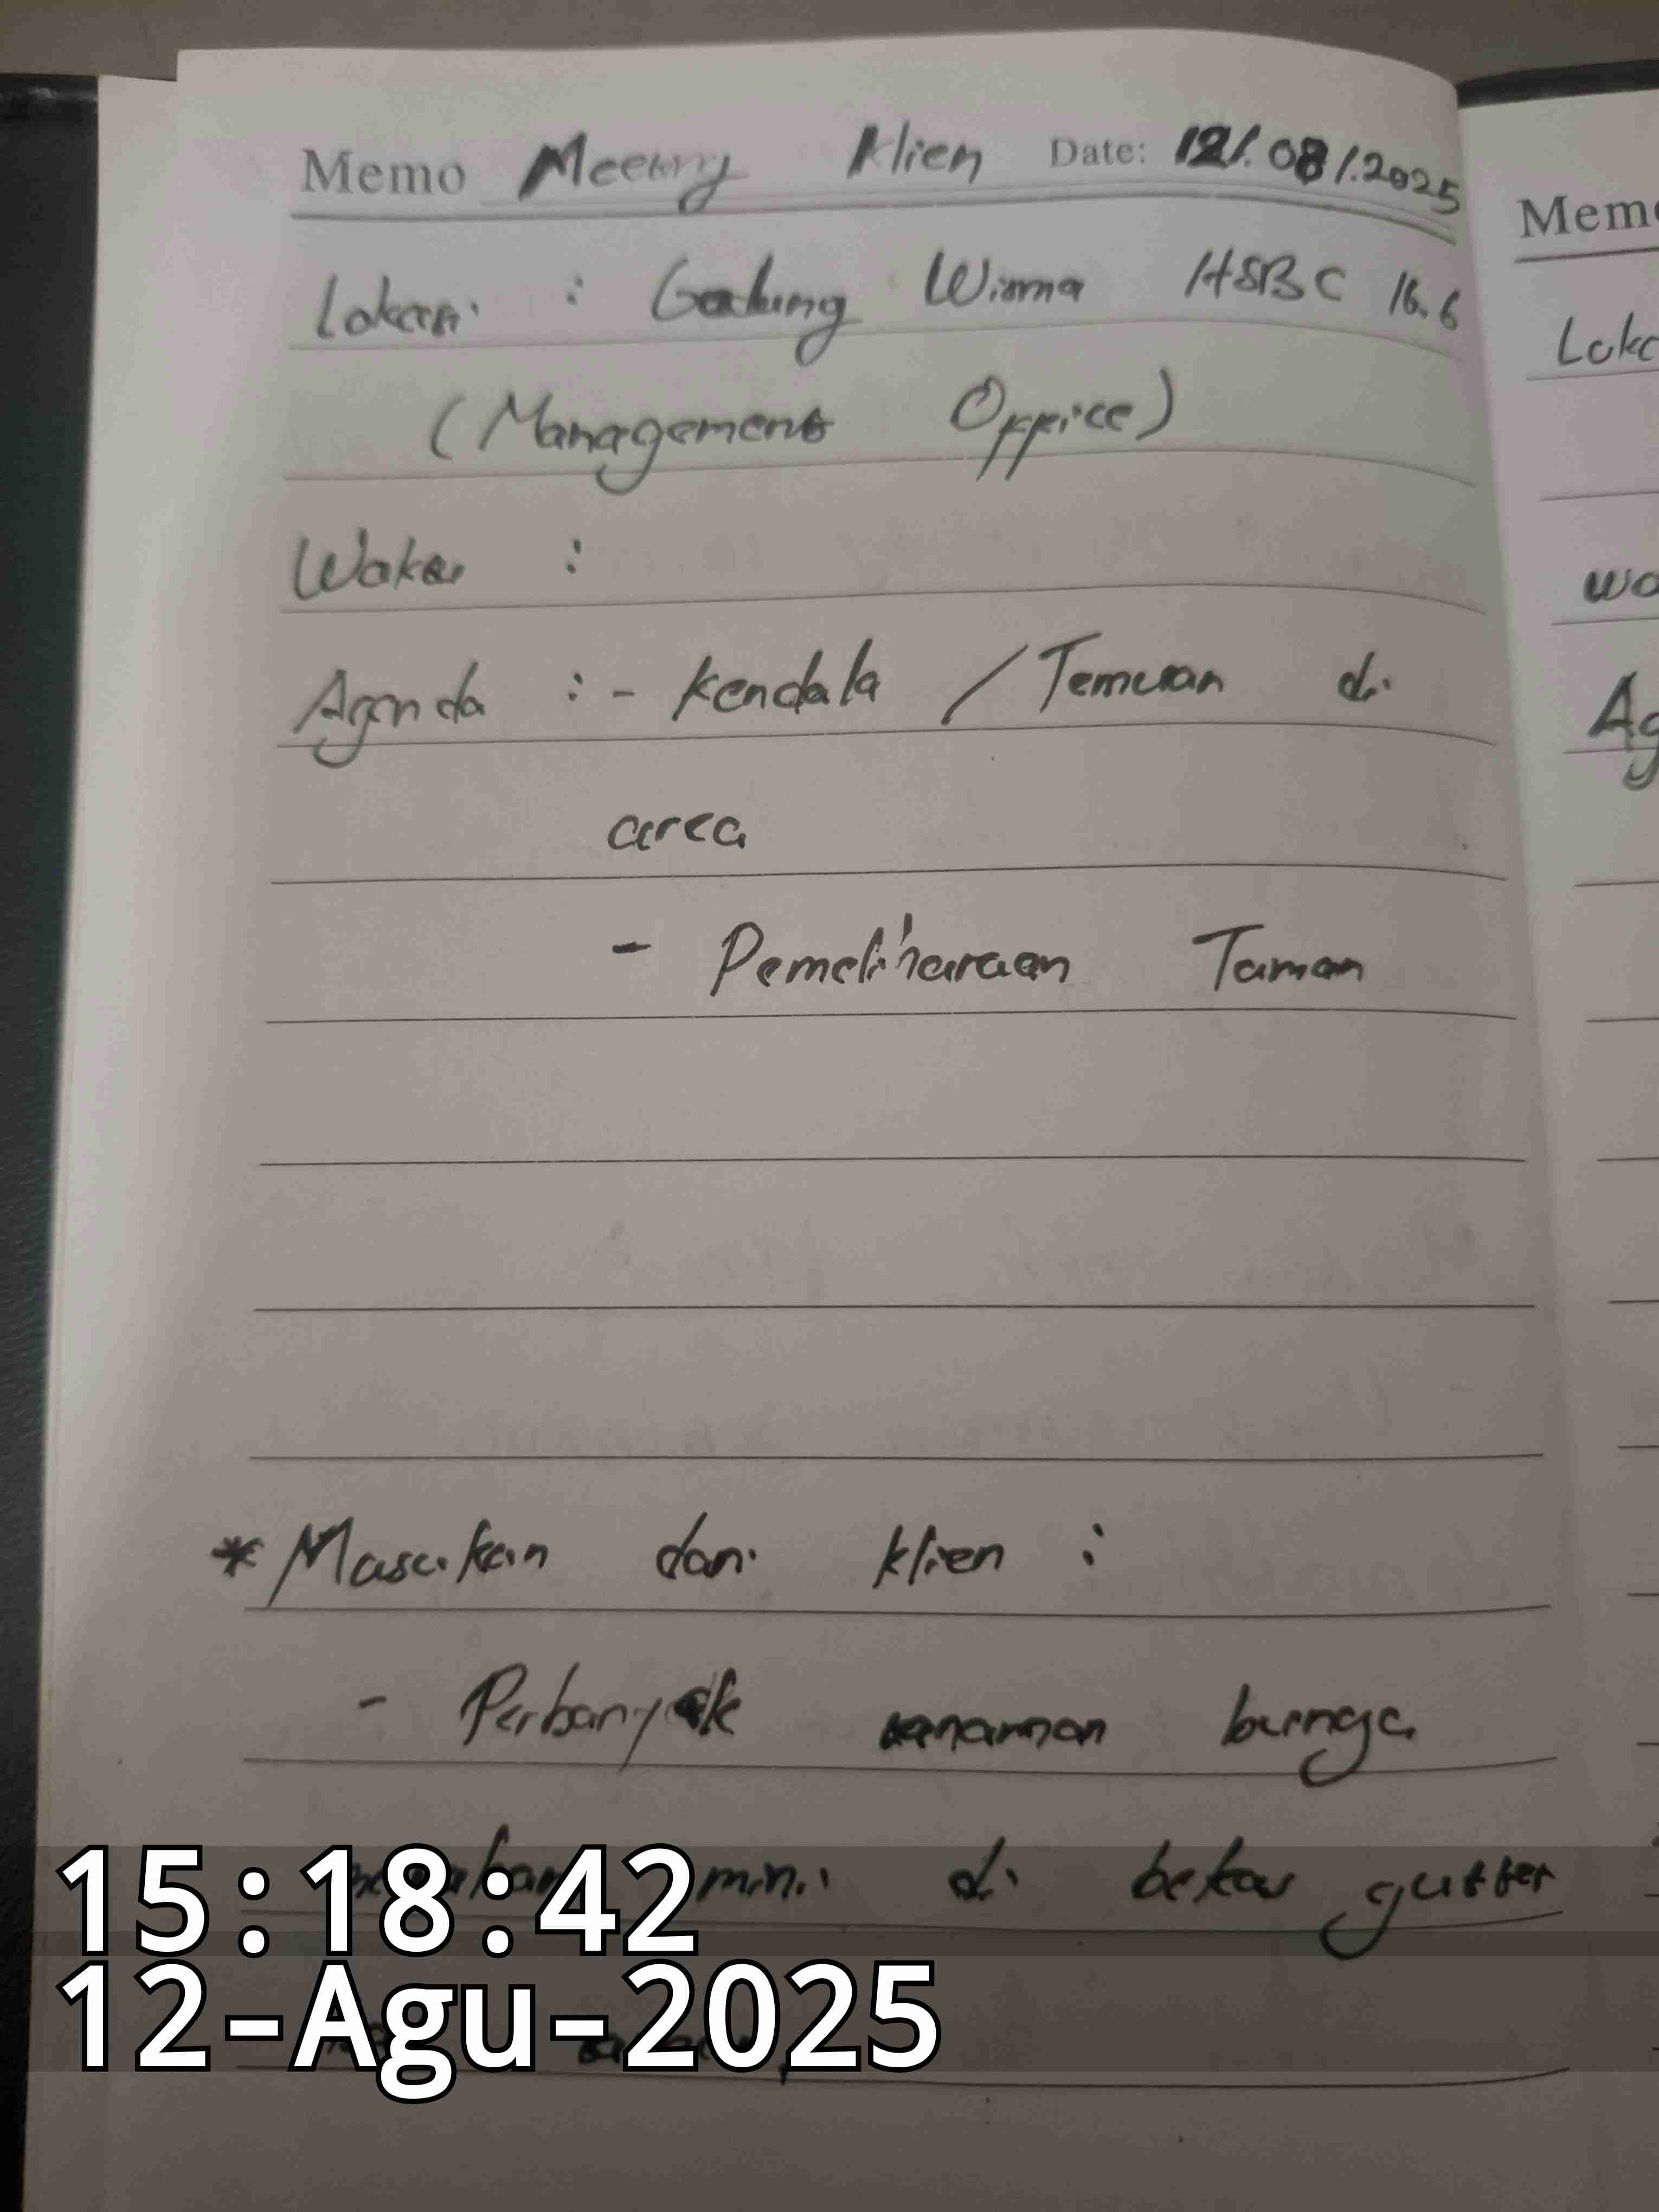 Memo Meeting Klien Date: 12/.08/.2025
Lokasi : Gedung Wisma HSBC 16.6
(Management Office)
Waktu :
Agenda : - Kendala / Temuan di
area
- Pemeliharaan Taman
* Masukan dari klien :
- Perbanyak tanaman bunga
mini di dekat gutter
15:18:42
12-Agu-2025
Memo